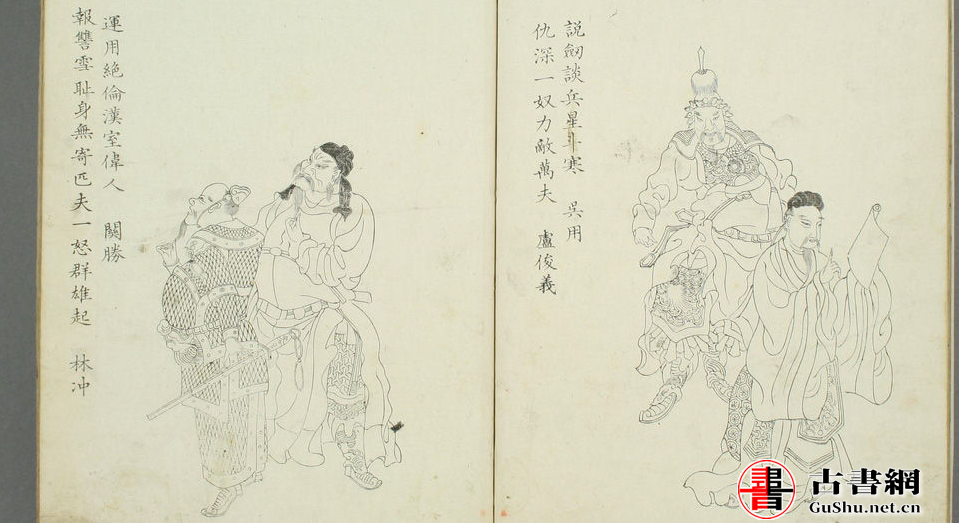 說劒談兵星斗寒 吳用
仇深一奴力敵萬夫 盧俊義
運用絕倫漢室偉人 關勝
報讐雪耻身無寄匹夫一怒群雄起 林冲
書 古書網
GuShu.net.cn